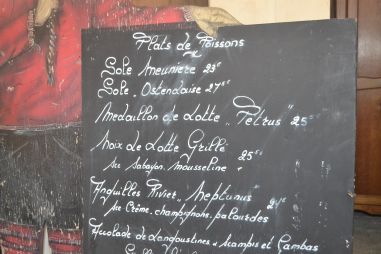 Plats de Poissons
Sole Meuniere 23€
Sole. Ostendaise 27€
Medaillon de Lotte „Petrus" 25€
Noix de Lotte Grille 25€
sur Sabayon. mousseline.
Anguilles Rivier „Neptunus"
sur Crème. champignons. palourdes
Accolade de Langoustines & Scampis et Gambas